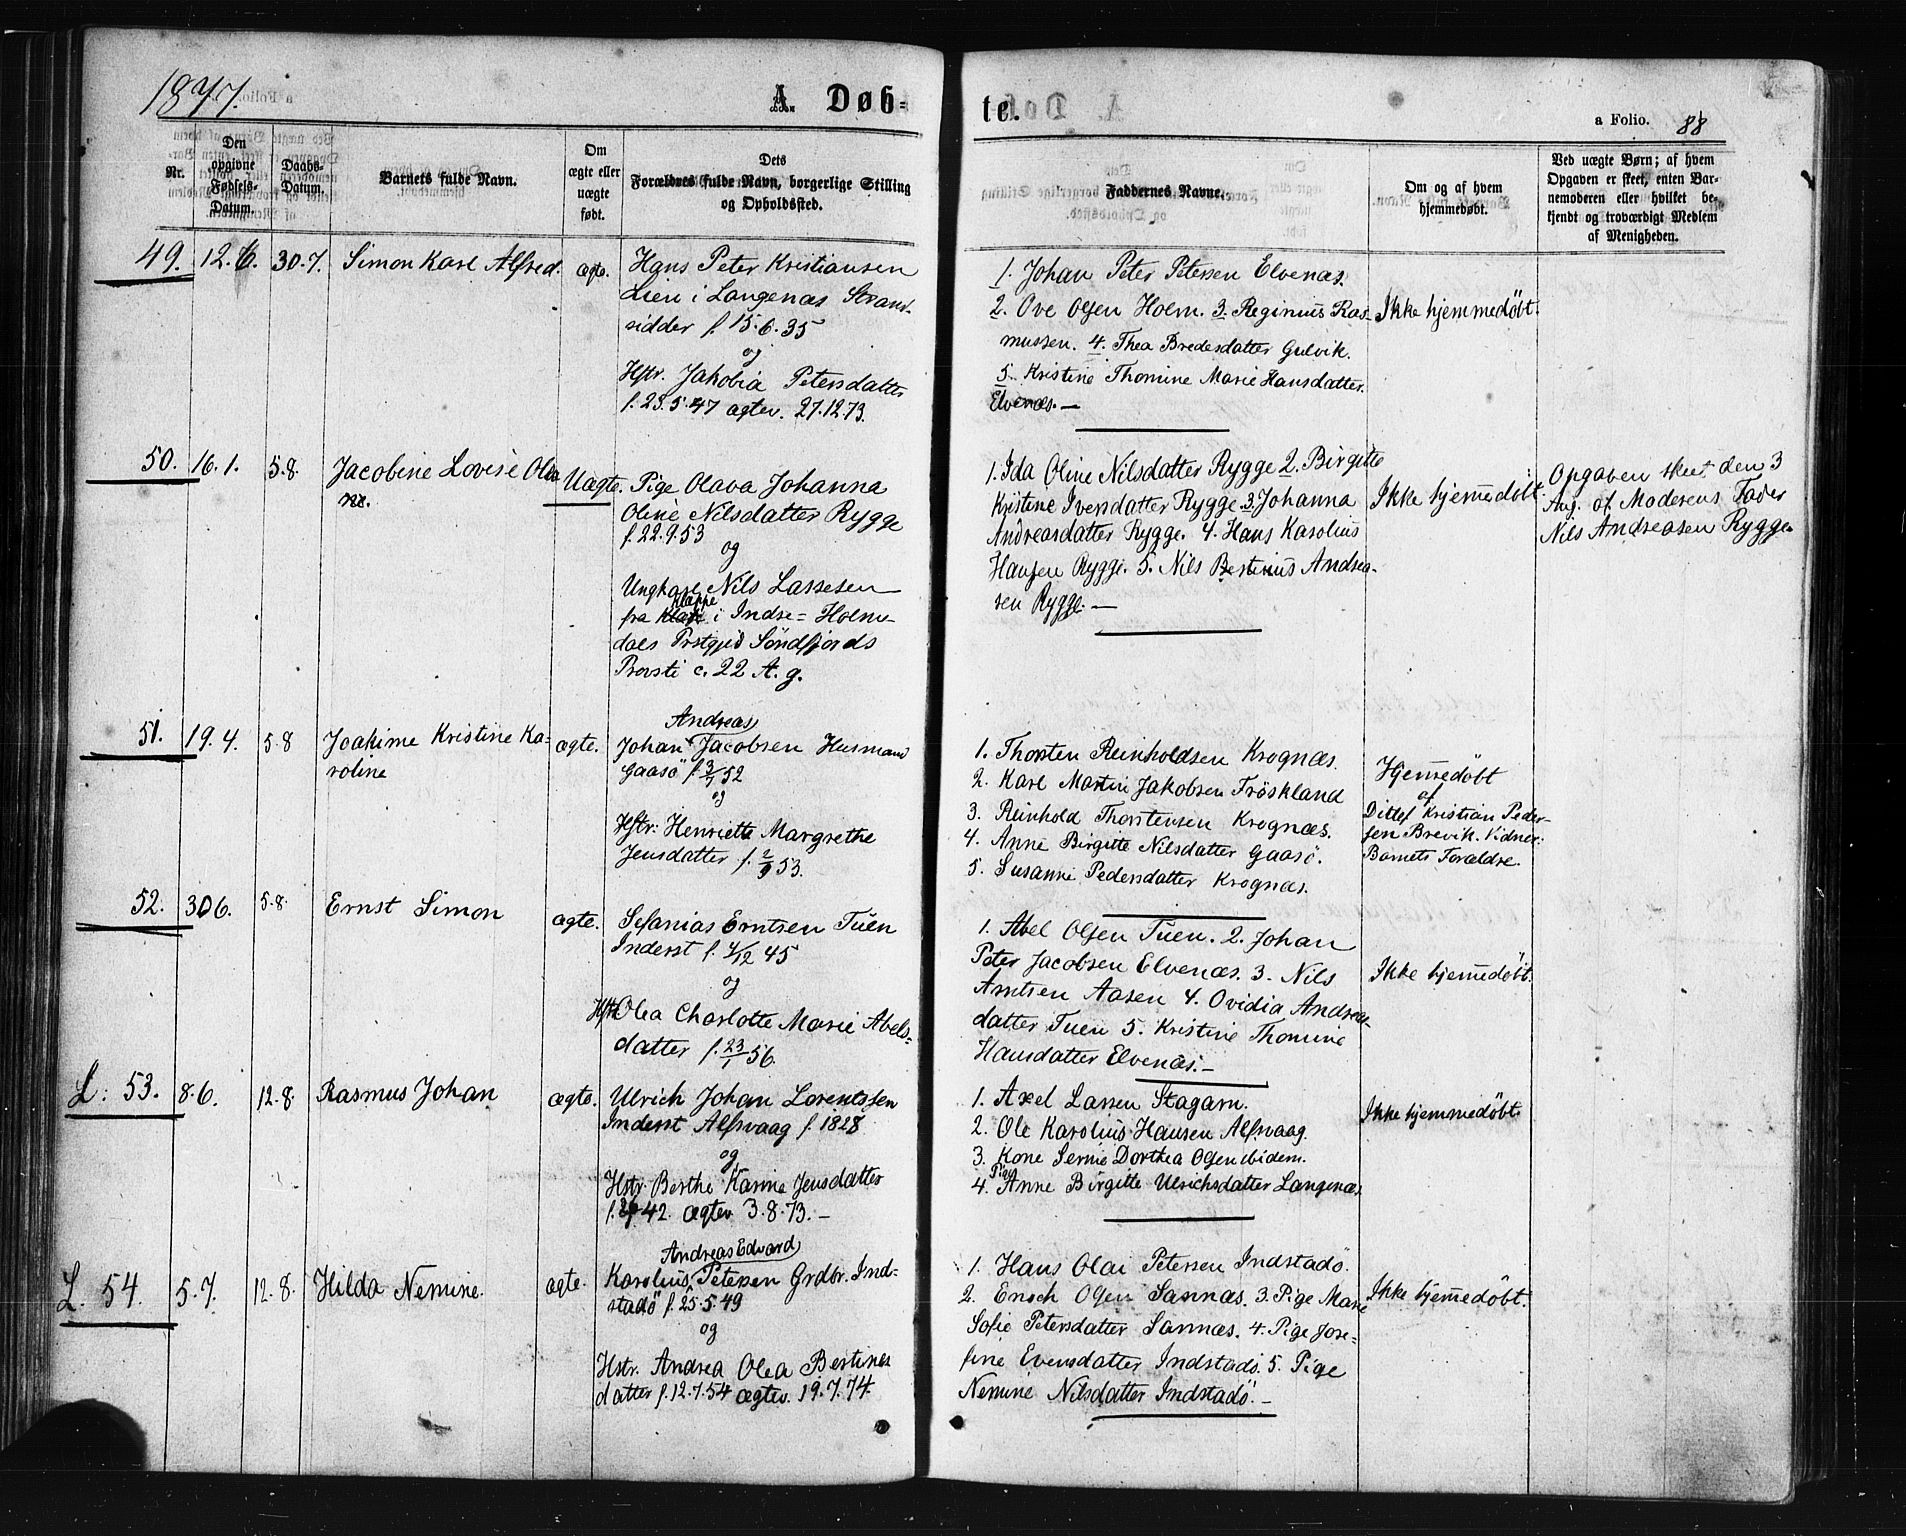 1877.
A. Døb-
te.
a Folio. 88
Nr.
Den opgivne Fødsels-Datum.
Daabs-Datum.
Barnets fulde Navn.
Om ægte eller uægte født.
Dets Forældres fulde Navn, borgerlige Stilling og Opholdssted.
Faddernes Navne.
Om og af hvem hjemmedøbt.
Ved uægte Børn; af hvem
Opgaven er skeet, enten Bar-
nemoderen eller hvilket be-
kjendt og troværdigt Medlem
af Menigheden.
49. 12.6. 30.7. Simon Karl Alfred. ægte. Hans Peter Kristiansen
Lien i Langenæs Strand-
sidder f. 15.6.35
og
Hstr. Jakobia Petersdatter
f. 23.5.47 ægtev. 27.12.73.
1. Johan Peter Petersen Elvenæs.
2. Ove Olsen Holm. 3. Reginius Ras-
mussen. 4. Thea Bredesdatter Gulvik.
5. Kristine Thomine Marie Hansdatter
Elvenæs. —
Ikke hjemmedøbt.
50. 16.1. 5.8. Jacobine Lovise Olea
Uægte. Pige Olava Johanna
Oline Nilsdatter Rygge
f. 22.9.53
og
Ungkarl Nils Lassesen
fra Klappe i Indre=Holme-
dals Prstgjed Søndfjords
Provsti c. 22 A. g.
1. Ida Oline Nilsdatter Rygge 2. Birgitte
Kristine Iversdatter Rygge 3. Johanna
Andreasdatter Rygge. 4. Hans Karolius
Hansen Rygge. 5. Nils Bertinus Andrea-
sen Rygge. —
Ikke hjemmedøbt.
Opgaven skeet den 3
Aug. af Moderens Fader
Nils Andreasen Rygge.
51. 19.4. 5.8 Joakime Kristine Ka-
roline
ægte.
Andreas
Johan Jacobsen Husmand
Gaasö f. 3/7 52
og
Hstr: Henriette Margrethe
Jensdatter f. 2/9 53.
1. Thorsten Reinholdsen Krognæs.
2. Karl Martin Jakobsen Fröskland
3. Reinhold Thorstensen Krognæs.
4. Anne Birgitte Nilsdatter Gaasö.
5. Susanne Pedersdatter Krognæs.
Hjemmedøbt
af
Ditlef Kristian Peder-
sen Brevik. Vidner:
Barnets Forældre.
52. 30.6. 5.8. Ernst Simon ægte. Sefanias Erntsen Tuen
Inderst f. 4/12 45
og
Hstr. Olea Charlotte Marie Abels-
datter f. 23/1 56.
1. Abel Olsen Tuen. 2. Johan
Peter Jacobsen Elvenæs. 3. Nils
Arntsen Aasen 4. Ovidia Andrea-
datter Tuen 5. Kristine Thomine
Hansdatter Elvenæs. —
Ikke hjemmedøbt.
L: 53. 8.6. 12.8. Rasmus Johan ægte. Ulrich Johan Lorentssen
Inderst Alfsvaag f. 1828
og
Hstr. Berthe Karine Jensdatter
42. Ægtev 3.8.73. —
1. Axel Larsen Stagarn.
2. Ole Karolius Hansen Alfsvaag.
3. Kone Sernie Dorthea Olsen ibidem.
Pige
4. Anne Birgitte Ulrichsdatter Langenæs.
Ikke hjemmedøbt.
L. 54. 5.7. 12.8. Hilda Nemine. ægte.
Andreas Edvard
Karolius Petersen Grdbr. Ind-
stadö f. 25.5.49
og
Hstr. Andrea Olea Bertines
datter f. 12.7.54 ægtev. 19.7.74.
1. Hans Olai Petersen Indstadö.
2. Enoch Olsen Sannæs. 3. Pige Marie
Sofie Petersdatter Sannæs. 4. Pige Jose-
fine Evensdatter Indstadö. 5. Pige
Nemine Nilsdatter Indstadö. —
Ikke hjemmedøbt.